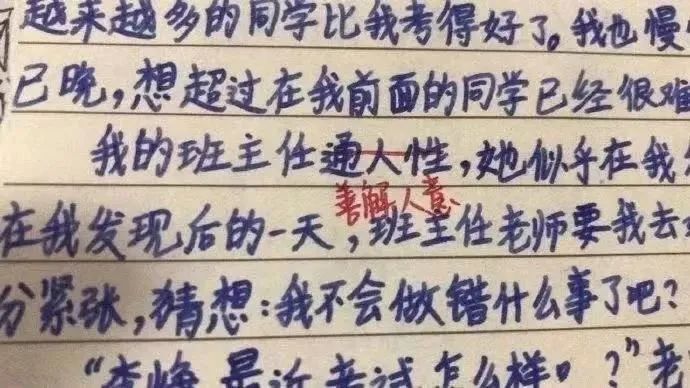 越来越多的同学比我考得好了。我也慢
已晚，想超过在我前面的同学已经很难
我的班主任通人性，她似乎在我
善解人意
在我发现后的一天，班主任老师要我去
分紧张，猜想：我不会做错什么事了吧？
是近考试怎么样。？”老